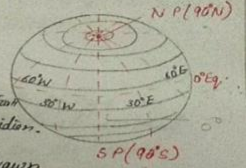 NP(90°N)
60°W
60°E
0°Eq.
30°W
30°E
idian.
0°
SP(90°S)